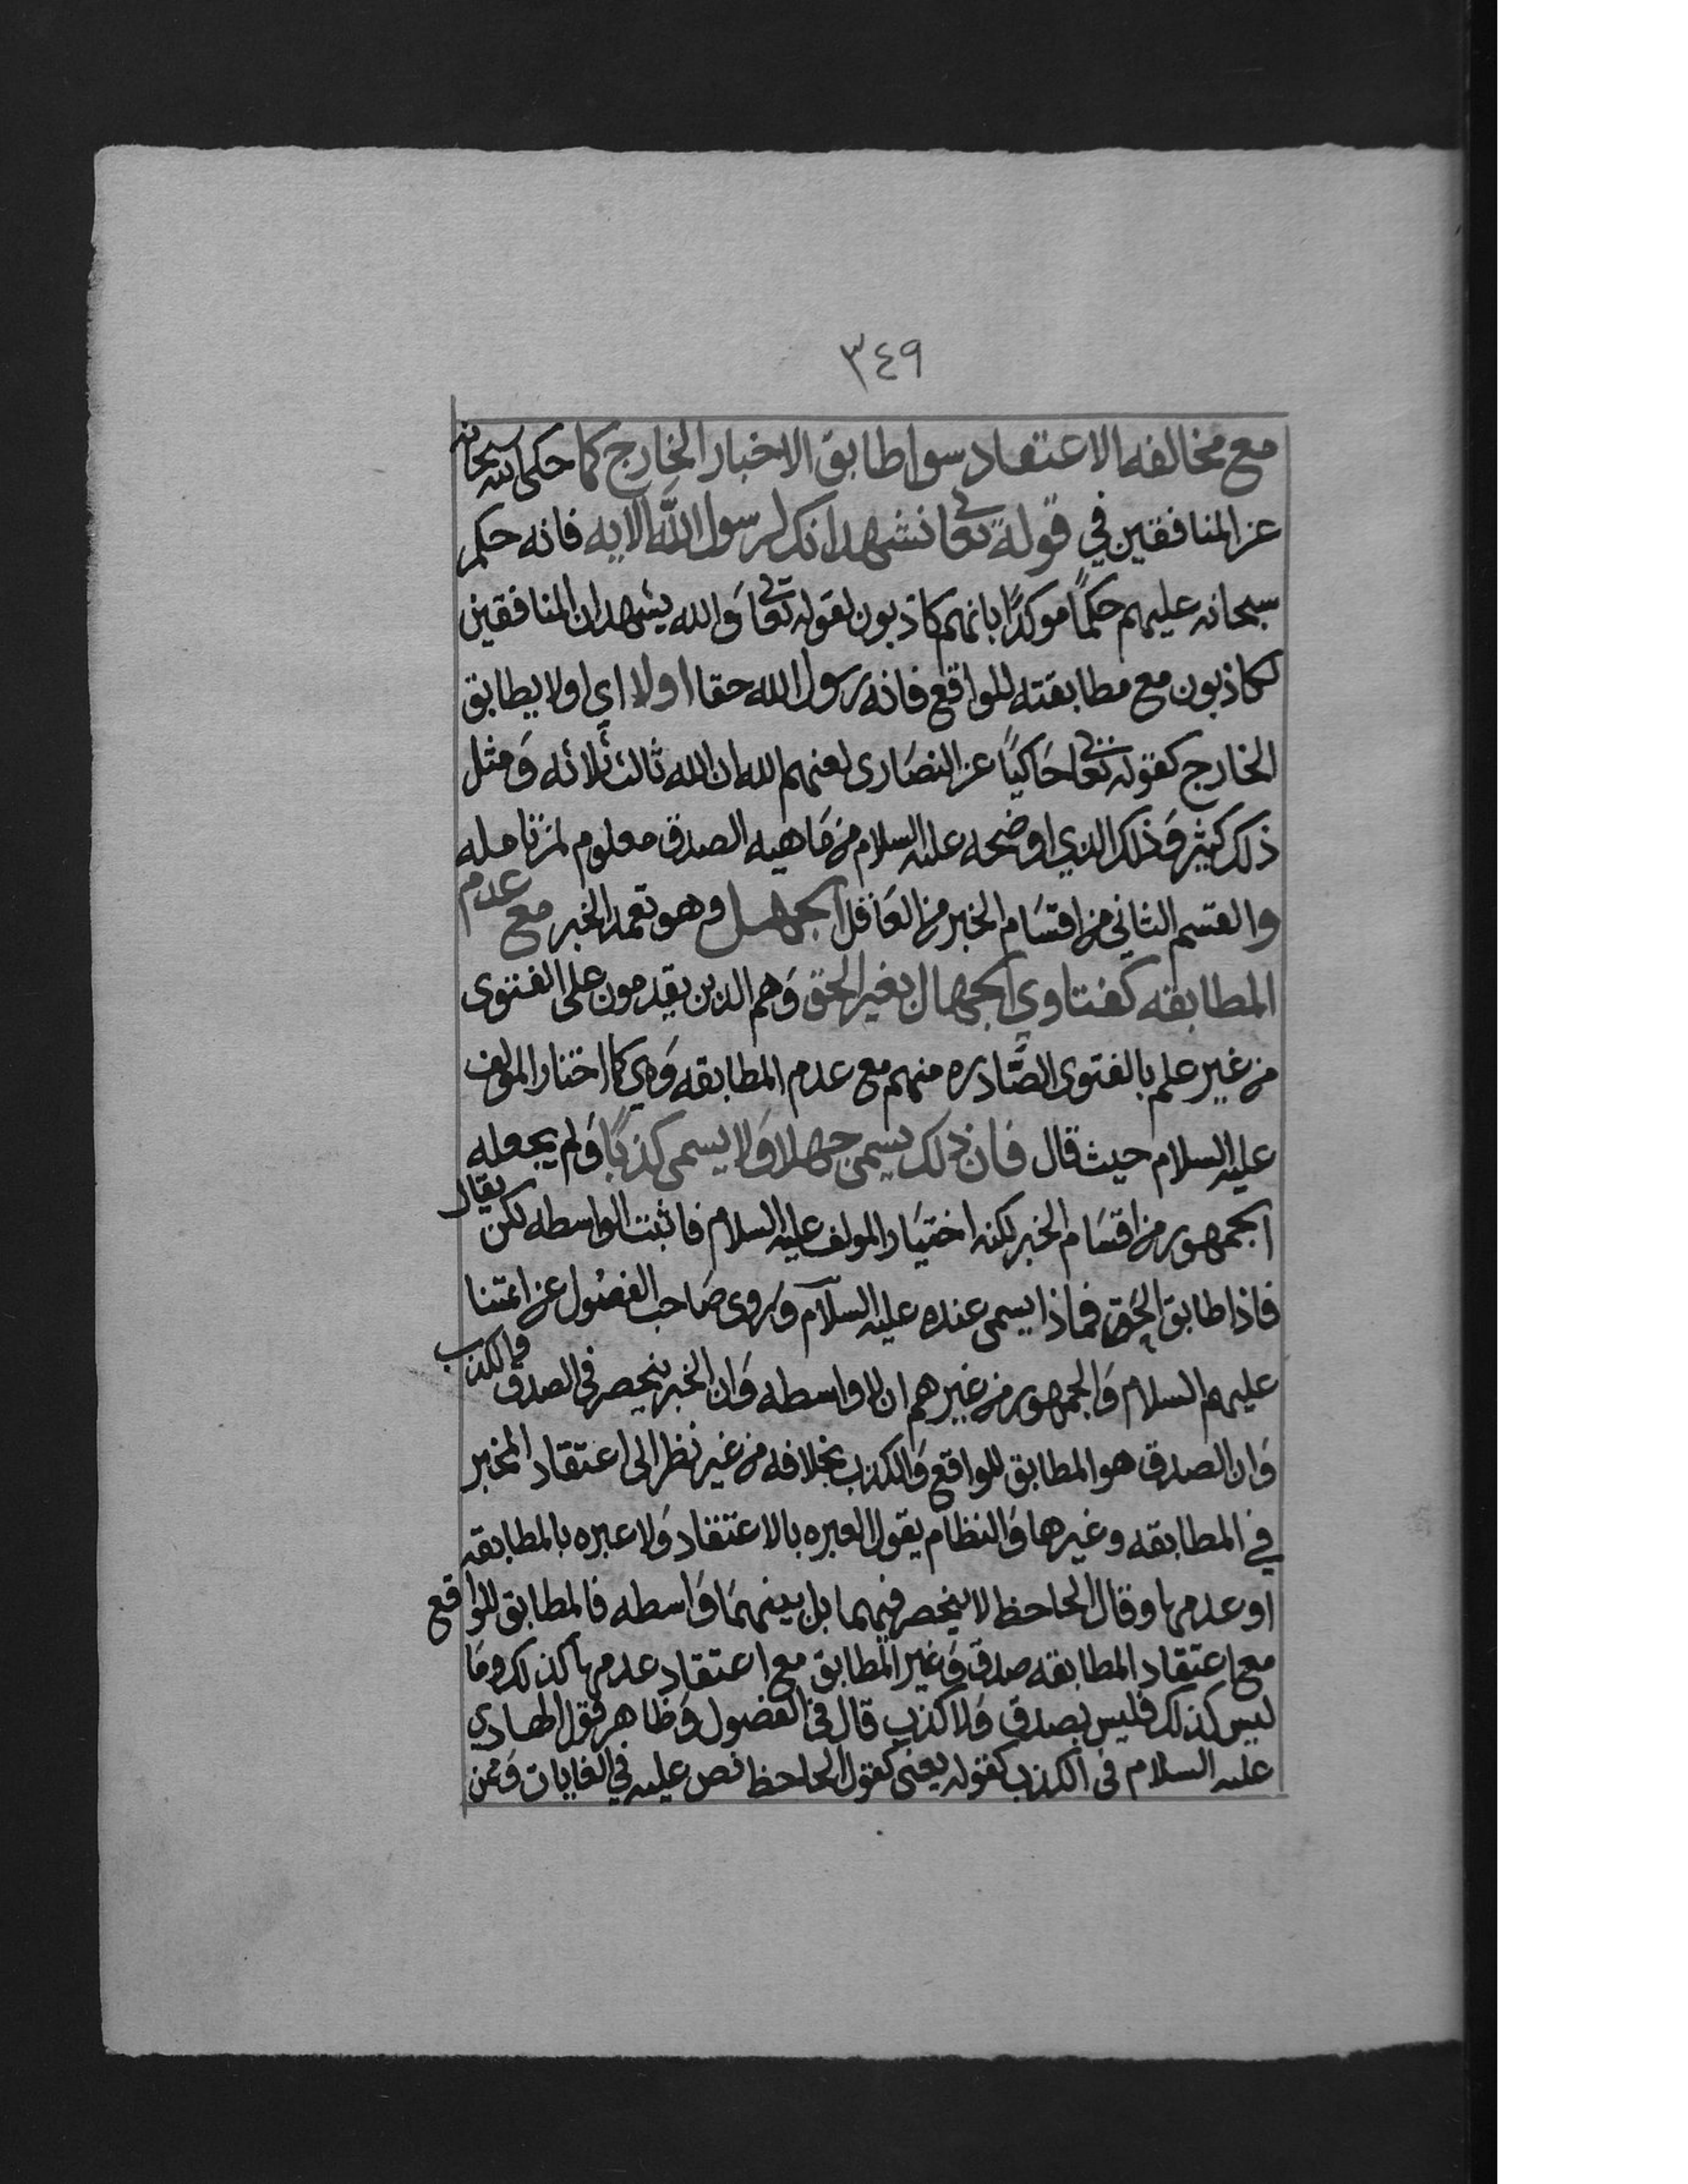 ٣٤٩
مع مخالفه الاعتقاد سوا طابق الاخبار الخارج كما حكى الله سبحانه
عن المنافقين في قوله تعالى نشهد انك لرسول الله الايه فانه حكم
سبحانه عليهم حكمًا موكدًا بانهم كاذبون لقوله تعالى وَالله يشهد ان المنافقين
لكاذبون مع مطابقته للواقع فانه رسول الله حقا اولا اي اولا يطابق
الخارج كقوله تعالى حَاكيًا عن النصَارى لعنهم الله ان الله ثالث ثلاثه وَمثل
ذلك كثير وَذلك الذي اوضحه عليه السلام من مَاهيه الصدق معلوم لمن تامله
والقسم الثاني من اقسَام الخبر من العَاقل الجهل وهو تعمد الخبر مع عدم
المطابقه كفتاوي الجهال بغير الحق وَهم الذين يقدمون على الفتوى
من غير علم بالفتوى الصَّادره منهم مع عدم المطابقه وَهي كما اختار المولف
عليه السلام حيث قال فان ذلك يسمى جهلا وَلا يسمى كذبًا وَلم يجعله
الجمهور من اقسَام الخبر لكنه اختيَار المولف عليه السلام فاثبت الواسطه لكن يقال
فاذا طابق الحَق فماذا يسمى عنده عليه السلام وَروى صَاحب الفصُول عن ائمتنا
عليهم السلام وَالجمهور من غيرهم ان لا واسطه وَان الخبر ينحصر في الصدق والكذب
وَان الصدق هو المطابق للواقع وَالكذب بخلافه من غير نظر الى اعتقاد المخبر
في المطابقه وغيرها وَالنظام يقول العبره بالاعتقاد وَلا عبره بالمطابقه
او عدمها وقال الجاحظ لا ينحصر فيهما بل بينهمَا وَاسطه فالمطابق للواقع
مع اعتقاد المطابقه صدق وَغير المطابق مع اعتقاد عدمها كذلك ومَا
ليس كذلك فليس بصدق وَلا كذب قال في الفصول وَظاهر قول الهادي
عليه السلام في الكذب كقوله يعني كقول الجاحظ نص عليه في الغايات وَممن